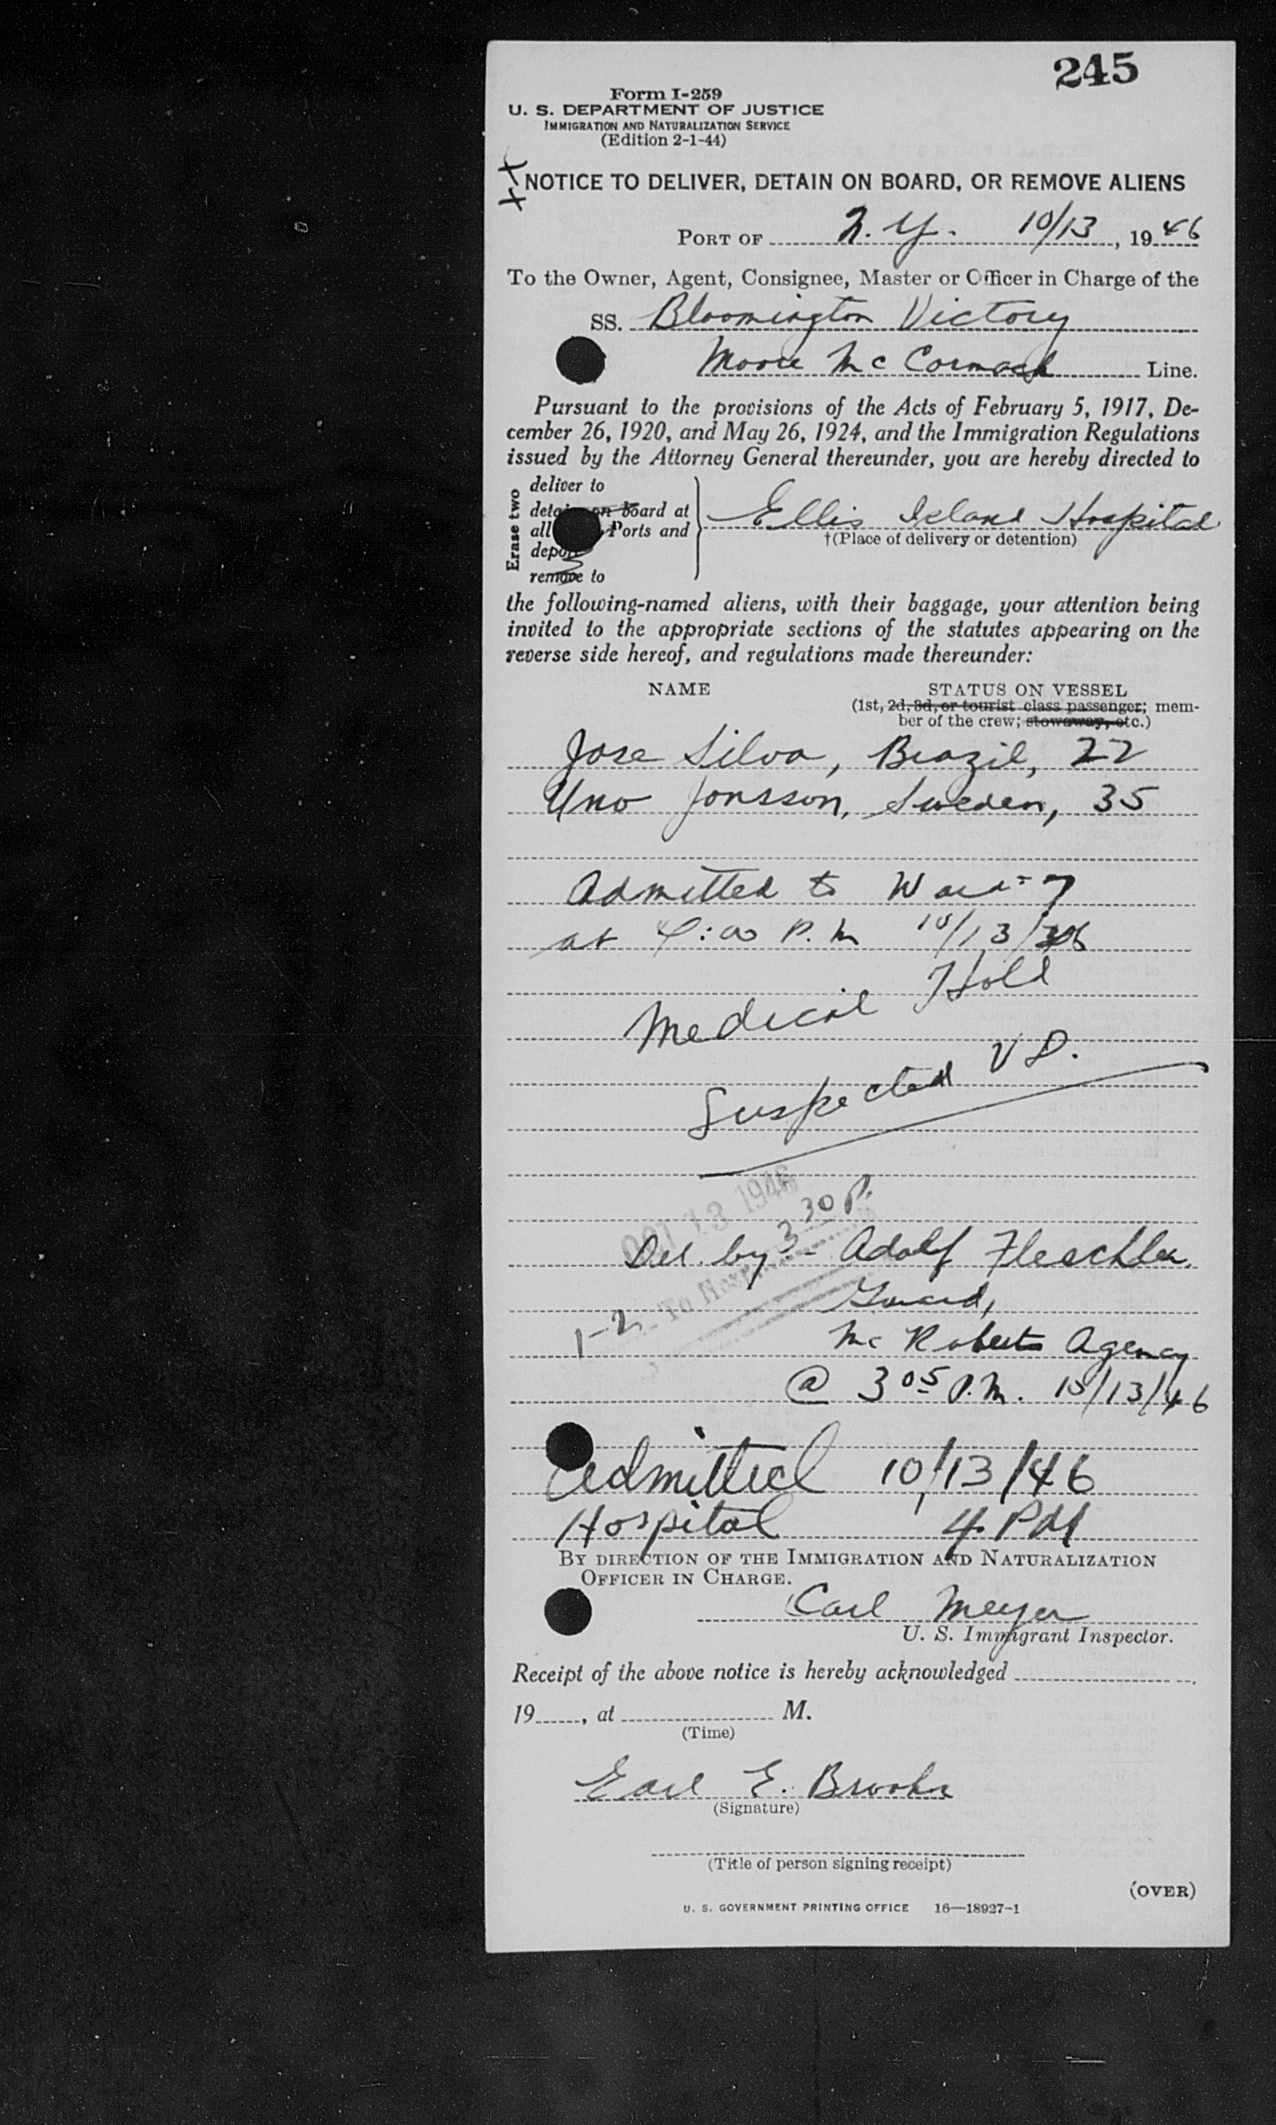 245
Form I-259
U. S. DEPARTMENT OF JUSTICE
IMMIGRATION AND NATURALIZATION SERVICE
(Edition 2-1-44)
XX
NOTICE TO DELIVER, DETAIN ON BOARD, OR REMOVE ALIENS
PORT OF N. Y. 10/13, 1946
To the Owner, Agent, Consignee, Master or Officer in Charge of the
SS. Bloomington Victory
Moore Mc Cormack Line.
Pursuant to the provisions of the Acts of February 5, 1917, De-
cember 26, 1920, and May 26, 1924, and the Immigration Regulations
issued by the Attorney General thereunder, you are hereby directed to
Erase two
deliver to
detain on board at
all Ports and
deport
remove to
Ellis Island Hospital
†(Place of delivery or detention)
the following-named aliens, with their baggage, your attention being
invited to the appropriate sections of the statutes appearing on the
reverse side hereof, and regulations made thereunder:
NAME STATUS ON VESSEL
(1st, 2d, 3d, or tourist class passenger; mem-
ber of the crew; stowaway, etc.)
Jose Silva, Brazil, 22
Uno Jonsson, Sweden, 35
Admitted to Ward 7
at 4:00 P.M 10/13/46
Medical Hold
Suspected V D.
OCT 13 1946
3 30 P.
Del. by - Adolf Fleschler,
To Hosp
Guard,
1-2
Mc Roberts Agency
@ 3 05 P.M. 10/13/46
Admitted 10/13/46
Hospital 4 PM
BY DIRECTION OF THE IMMIGRATION AND NATURALIZATION
OFFICER IN CHARGE.
Carl Meyer
U. S. Immigrant Inspector.
Receipt of the above notice is hereby acknowledged
19, at M.
(Time)
Earl E. Brooks
(Signature)
(Title of person signing receipt)
(OVER)
U. S. GOVERNMENT PRINTING OFFICE 16—18927-1